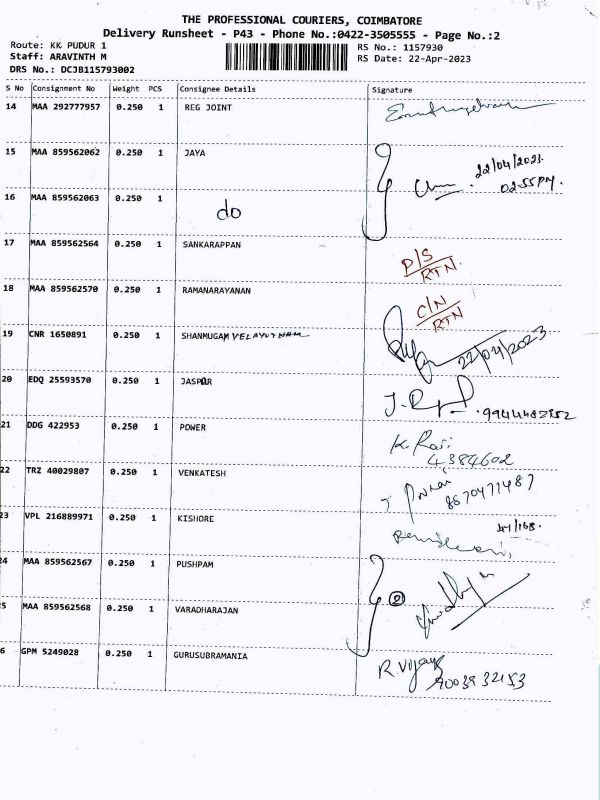 THE PROFESSIONAL COURIERS, COIMBATORE
Delivery Runsheet - P43 - Phone No.:0422-3505555 - Page No.:2
Route: KK PUDUR 1 RS No.: 1157930
Staff: ARAVINTH M RS Date: 22-Apr-2023
DRS No.: DCJB115793002
S No Consignment No Weight PCS Consignee Details Signature
14 MAA 292777957 0.250 1 REG JOINT
15 MAA 859562062 0.250 1 JAYA 22/04/2023.
02.55PM.
16 MAA 859562063 0.250 1 do
17 MAA 859562564 0.250 1 SANKARAPPAN D/S
RTN.
18 MAA 859562570 0.250 1 RAMANARAYANAN C/N
RTN
19 CNR 1650891 0.250 1 SHANMUGAM VELAYUTHAM 22/04/2023
20 EDQ 25593570 0.250 1 JASPAR
21 DDG 422953 0.250 1 POWER K. Raji
4384602
22 TRZ 40029807 0.250 1 VENKATESH 8870471487
23 VPL 216889971 0.250 1 KISHORE
24 MAA 859562567 0.250 1 PUSHPAM 2
5 MAA 859562568 0.250 1 VARADHARAJAN
6 GPM 5249028 0.250 1 GURUSUBRAMANIA R. Vijay
9003932153